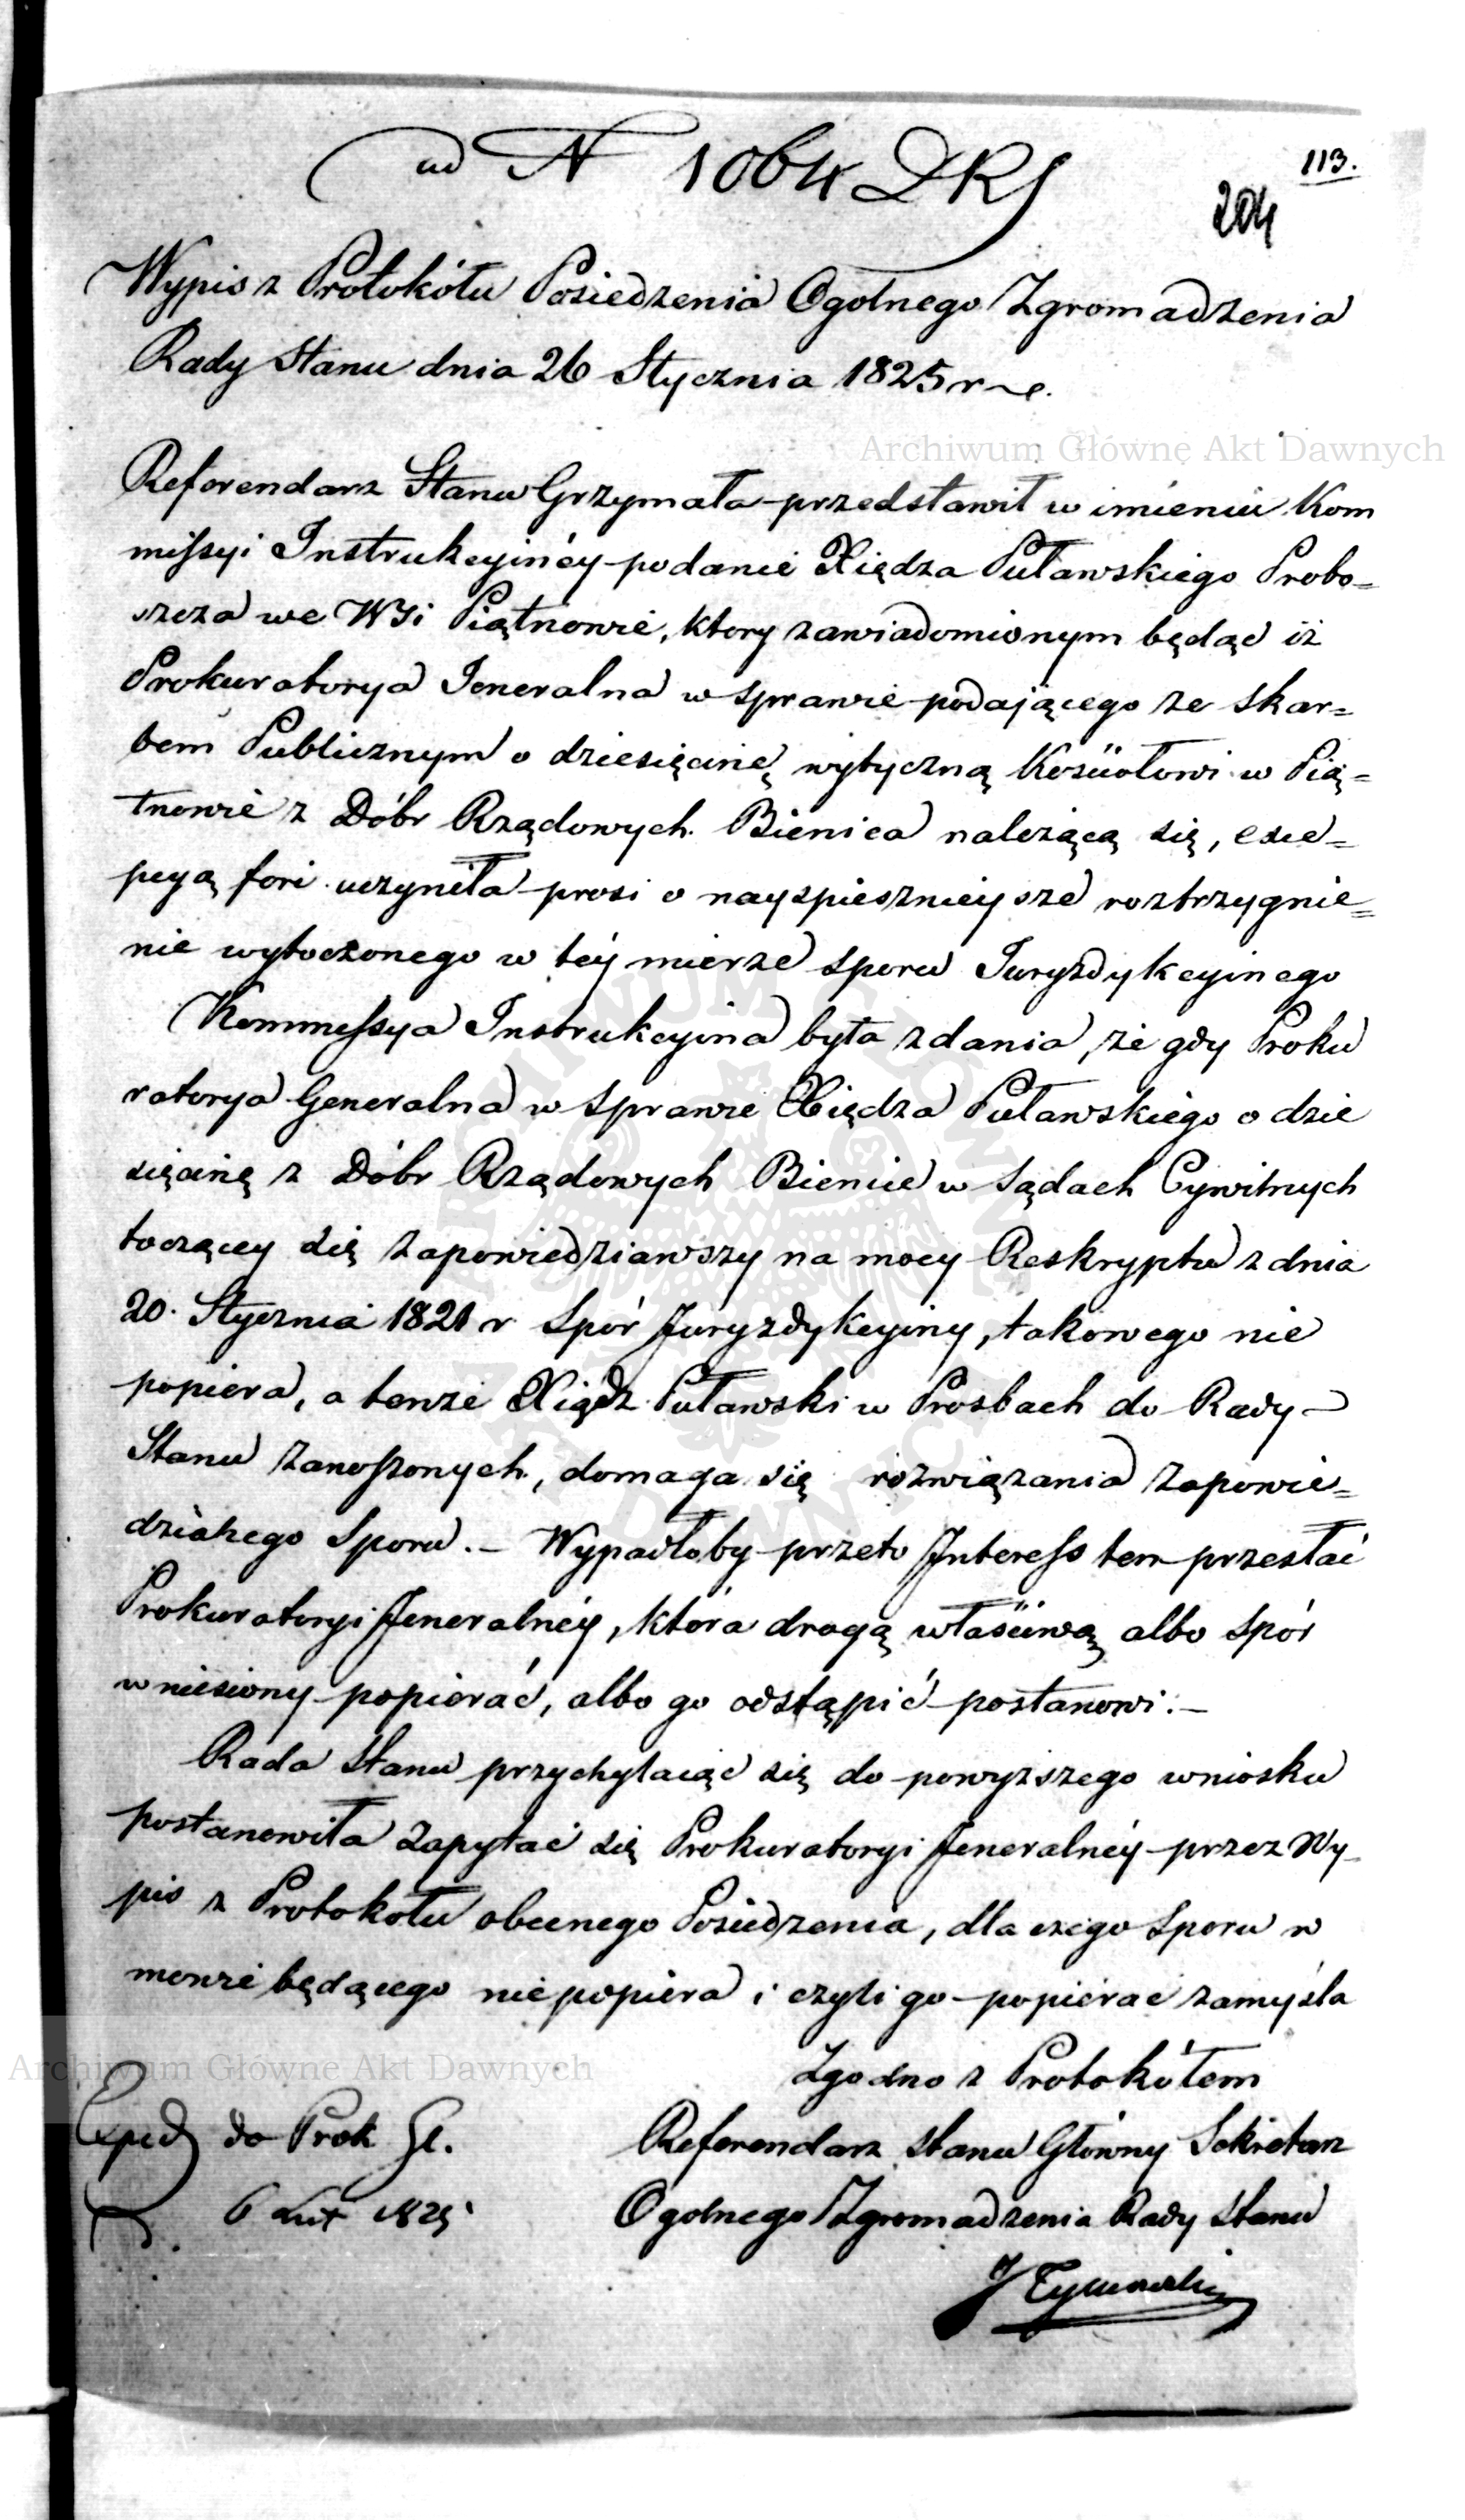 ad N 1064 DRS
113.
204
Wypis z Protokółu Posiedzenia Ogolnego Zgromadzenia
Rady Stanu dnia 26 Stycznia 1825 r
Archiwum Główne Akt Dawnych
Referendarz Stanu Grzymała przedstawił w imieniu Kom
missyi Instrukcyinéy podanie Xiędza Puławskiego Probo=
szcza we WSi Piątnowie, ktory zawiadomionym będąc iż
Prokuratorya Jeneralna w sprawie podającego ze skar=
bem Publicznym o dziesięcinę wytyczną Kościołowi w Pią=
tnowie z Dóbr Rządowych Bienica należącą się, exce=
pcyą fori uczyniła prosi o nayspiesznieysze roztrzygnie=
nie wytoczonego w téy mierze sporu Juryzdykcyinego
Kommissya Instrukcyina była zdania, że gdy Proku
ratorya Generalna w sprawie Xiędza Puławskiego o dzie
sięcinę z Dóbr Rządowych Bienice w Sądach Cywilnych
toczącey się zapowiedziawszy na mocy Reskryptu z dnia
20. Stycznia 1821 r Spór Juryzdykcyiny, takowego nie
popiera, a tenże Xiądz Puławski w Prosbach do Rady
Stanu zanoszonych, domaga się rozwiązania zapowie=
dzianego Sporu. – Wypadłoby przeto Interess ten przesłać
Prokuratoryi Jeneralnéy, która drogą właściwą albo spór
wniesiony popierać, albo go odstąpić postanowi. –
Rada Stanu przychylaiąc się do powyższego wniosku
postanowiła zapytać się Prokuratoryi Jeneralnéy przez Wy
pis z Protokołu obecnego Posiedzenia, dla czego Sporu w
mowie będącego nie popiera i czyli go popierać zamyśla
Zgodno z Protokółem
Archiwum Główne Akt Dawnych
Exped do Prok Gl.
Referendarz Stanu Główny Sekretarz
6 Lut 1825
Ogolnego Zgromadzenia Rady Stanu
J Tymowski
ARCHIWUM GŁÓWNE AKT DAWNYCH